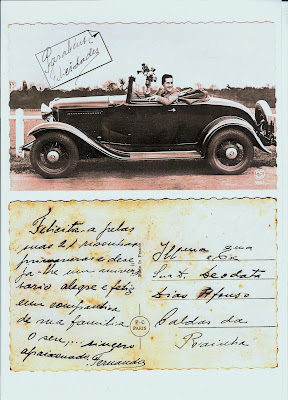 Parabens e
Felicidades
Felicita-a pelas
suas 21 risonhas
primaveras e dese
ja-lhe um aniver
sario alegre e feliz
em companhia
de sua familia
O seu... sincero
apaixonado Fernandes
P-C
PARIS
Illma Sua
Deodata
Dias Afonso
Caldas da
Rainha